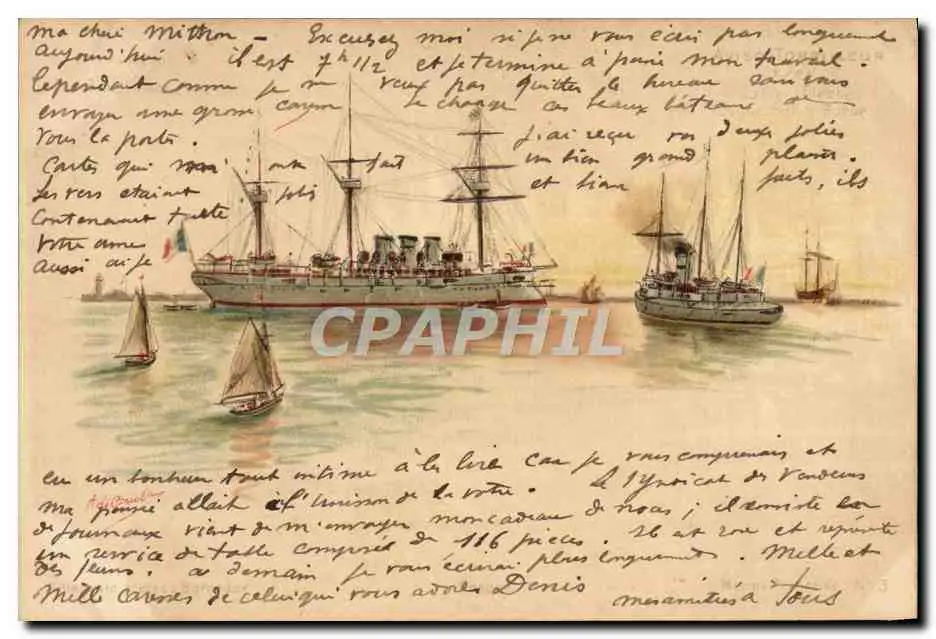 ma chère Mitton - Excusez moi si je ne vous écris pas longuement
aujourd'hui. il est 7h 1/2 et je termine à peine mon travail.
Cependant comme je ne veux pas quitter le bureau sans vous
envoyer une grosse caresse je charge ces beaux bateaux de
vous la porter. J'ai reçu vos deux jolies
Cartes qui m'ont fait un bien grand plaisir.
Les vers étaient jolis et bien faits, ils
Contenaient toute
votre âme
aussi ai je
CPAPHIL
eu un bonheur tout intime à les lire car je vous comprenais et
ma pensée allait à l'unisson de la votre. Le Syndicat des Vendeurs
de Journaux vient de m'envoyer mon cadeau de noces; il consiste en
un service de table composé de 116 pièces. Il est rose et représente
des fleurs. à demain je vous écrirai plus longuement. Mille et
Mille caresses de celui qui vous adore Denis mes amitiés à Tous